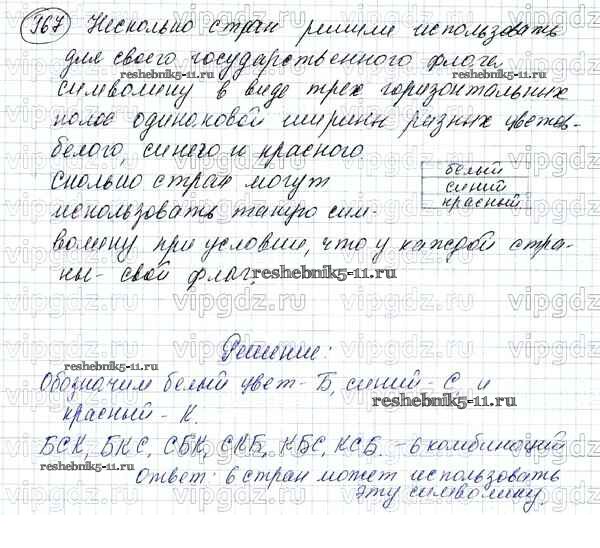 967 Несколько стран решили использовать
для своего государственного флага
reshebnik5-11.ru reshebnik5-11.ru
символику в виде трех горизонтальных
полос одинаковой ширины разных цветов-
белого, синего и красного.
белый
синий
красный
Сколько стран могут
использовать такую сим-
волику при условии, что у каждой стра-
ны - свой флаг.
reshebnik5-11.ru
Решение:
reshebnik5-11.ru
Обозначим белый цвет - Б, синий - С, и
красный - К.
reshebnik5-11.ru
БСК, БКС, СБК, СКБ, КБС, КСБ. - 6 комбинаций
reshebnik5-11.ru reshebnik5-11.ru
Ответ: 6 стран может использовать
эту символику.
vipgdz.ru